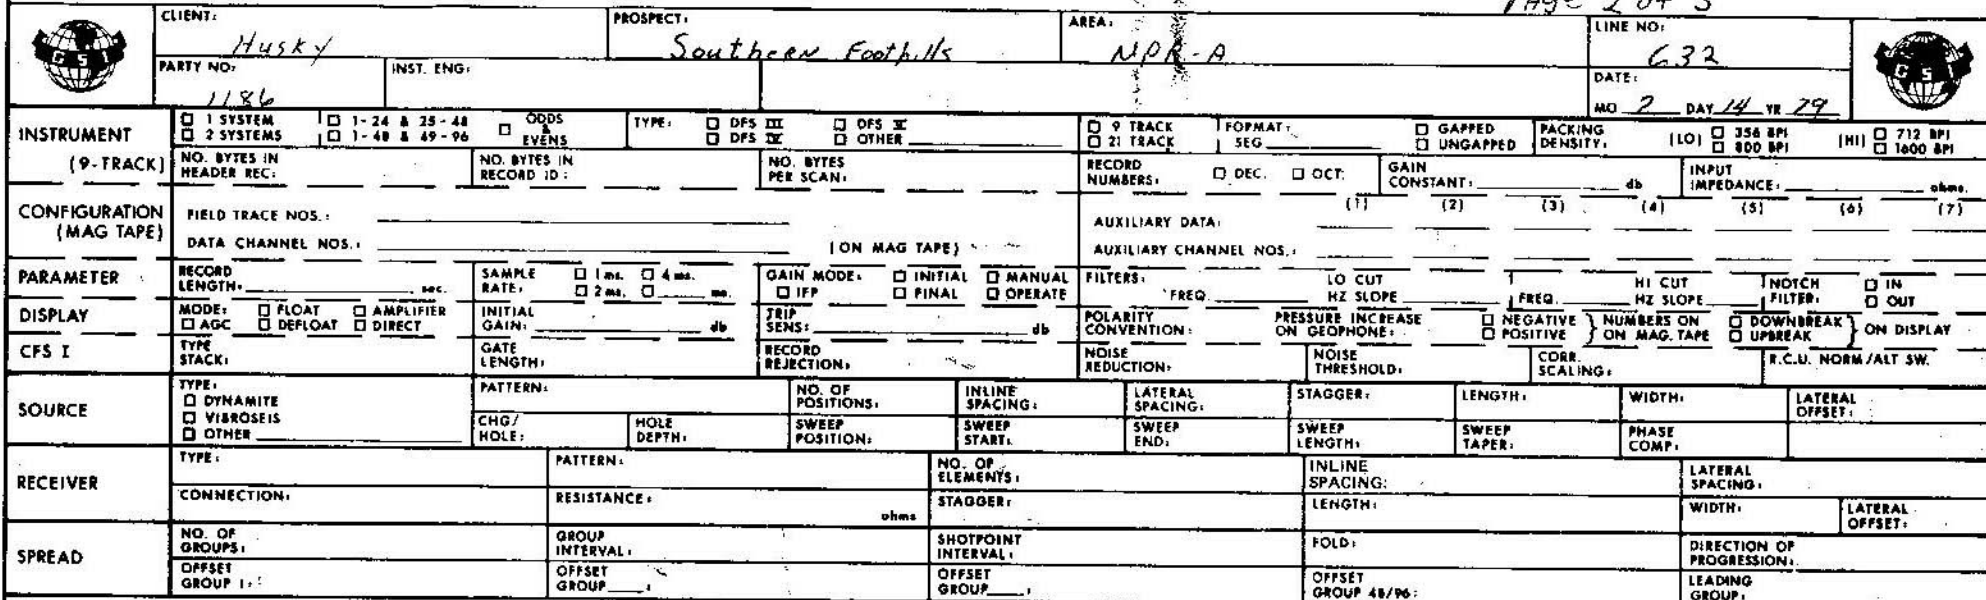 PAge 2 of 3
CLIENT: Husky PROSPECT: Southern Foothills AREA: NPR-A LINE NO: 632
GSI GSI
PARTY NO: 1186 INST. ENG: DATE: MO 2 DAY 14 YR 79
INSTRUMENT (9-TRACK) □ 1 SYSTEM □ 1-24 & 25-48 □ ODDS & EVENS TYPE: □ DFS III □ DFS V □ 9 TRACK FORMAT: □ GAPPED PACKING DENSITY: (LO) □ 356 BPI (HI) □ 712 BPI
□ 2 SYSTEMS □ 1-48 & 49-96 □ DFS IV □ OTHER □ 21 TRACK SEG □ UNGAPPED □ 800 BPI □ 1600 BPI
NO. BYTES IN HEADER REC: NO. BYTES IN RECORD ID: NO. BYTES PER SCAN: RECORD NUMBERS: □ DEC. □ OCT. GAIN CONSTANT: db INPUT IMPEDANCE: ohms.
CONFIGURATION (MAG TAPE) FIELD TRACE NOS.: AUXILIARY DATA: (1) (2) (3) (4) (5) (6) (7)
DATA CHANNEL NOS.: (ON MAG TAPE) AUXILIARY CHANNEL NOS.:
PARAMETER RECORD LENGTH: sec. SAMPLE RATE: □ 1 ms. □ 4 ms. □ 2 ms. □ ms. GAIN MODE: □ INITIAL □ MANUAL □ IFP □ FINAL □ OPERATE FILTERS: FREQ LO CUT HZ SLOPE FREQ HI CUT HZ SLOPE NOTCH FILTER: □ IN □ OUT
DISPLAY MODE: □ FLOAT □ AMPLIFIER □ AGC □ DEFLOAT □ DIRECT INITIAL GAIN: db TRIP SENS: db POLARITY CONVENTION: PRESSURE INCREASE ON GEOPHONE: □ NEGATIVE □ POSITIVE } NUMBERS ON MAG. TAPE □ DOWNBREAK □ UPBREAK } ON DISPLAY
CFS I TYPE STACK: GATE LENGTH: RECORD REJECTION: NOISE REDUCTION: NOISE THRESHOLD: CORR. SCALING: R.C.U. NORM/ALT SW.
SOURCE TYPE: □ DYNAMITE □ VIBROSEIS □ OTHER PATTERN: NO. OF POSITIONS: INLINE SPACING: LATERAL SPACING: STAGGER: LENGTH: WIDTH: LATERAL OFFSET:
CHG/HOLE: HOLE DEPTH: SWEEP POSITION: SWEEP START: SWEEP END: SWEEP LENGTH: SWEEP TAPER: PHASE COMP:
RECEIVER TYPE: PATTERN: NO. OF ELEMENTS: INLINE SPACING: LATERAL SPACING:
CONNECTION: RESISTANCE: ohms STAGGER: LENGTH: WIDTH: LATERAL OFFSET:
SPREAD NO. OF GROUPS: GROUP INTERVAL: SHOTPOINT INTERVAL: FOLD: DIRECTION OF PROGRESSION:
OFFSET GROUP 1: OFFSET GROUP : OFFSET GROUP : OFFSET GROUP 48/96: LEADING GROUP: